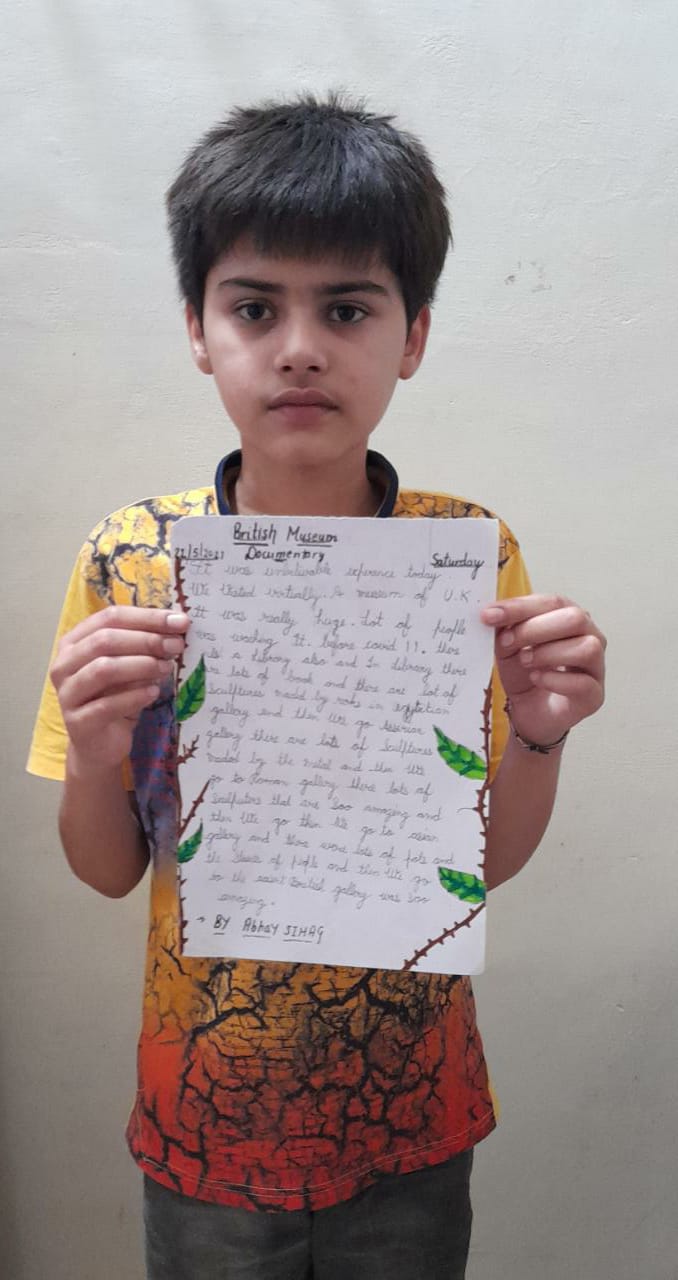 British Museum
Documentory
22/5/2021 Saturday
It was unbelivable experence today.
We visted virtially. A museum of U.K.
It was really huge. Lot of people
was waching It. before covid 19. there
Is a library also and In library there
are lots of book and there are lot of
Sculptures maded by rocks in egyptian
gallery and then We go Asserian
gallery there are lots of Sculptures
maded by the metal and then We
go to Roman gallery there lots of
sculptures that are soo amazing and
then We go then We go to asian
gallery and there were lots of pots and
the of people and then We go
to the British gallery was soo
amazing.
→ BY Abhay SIHAG